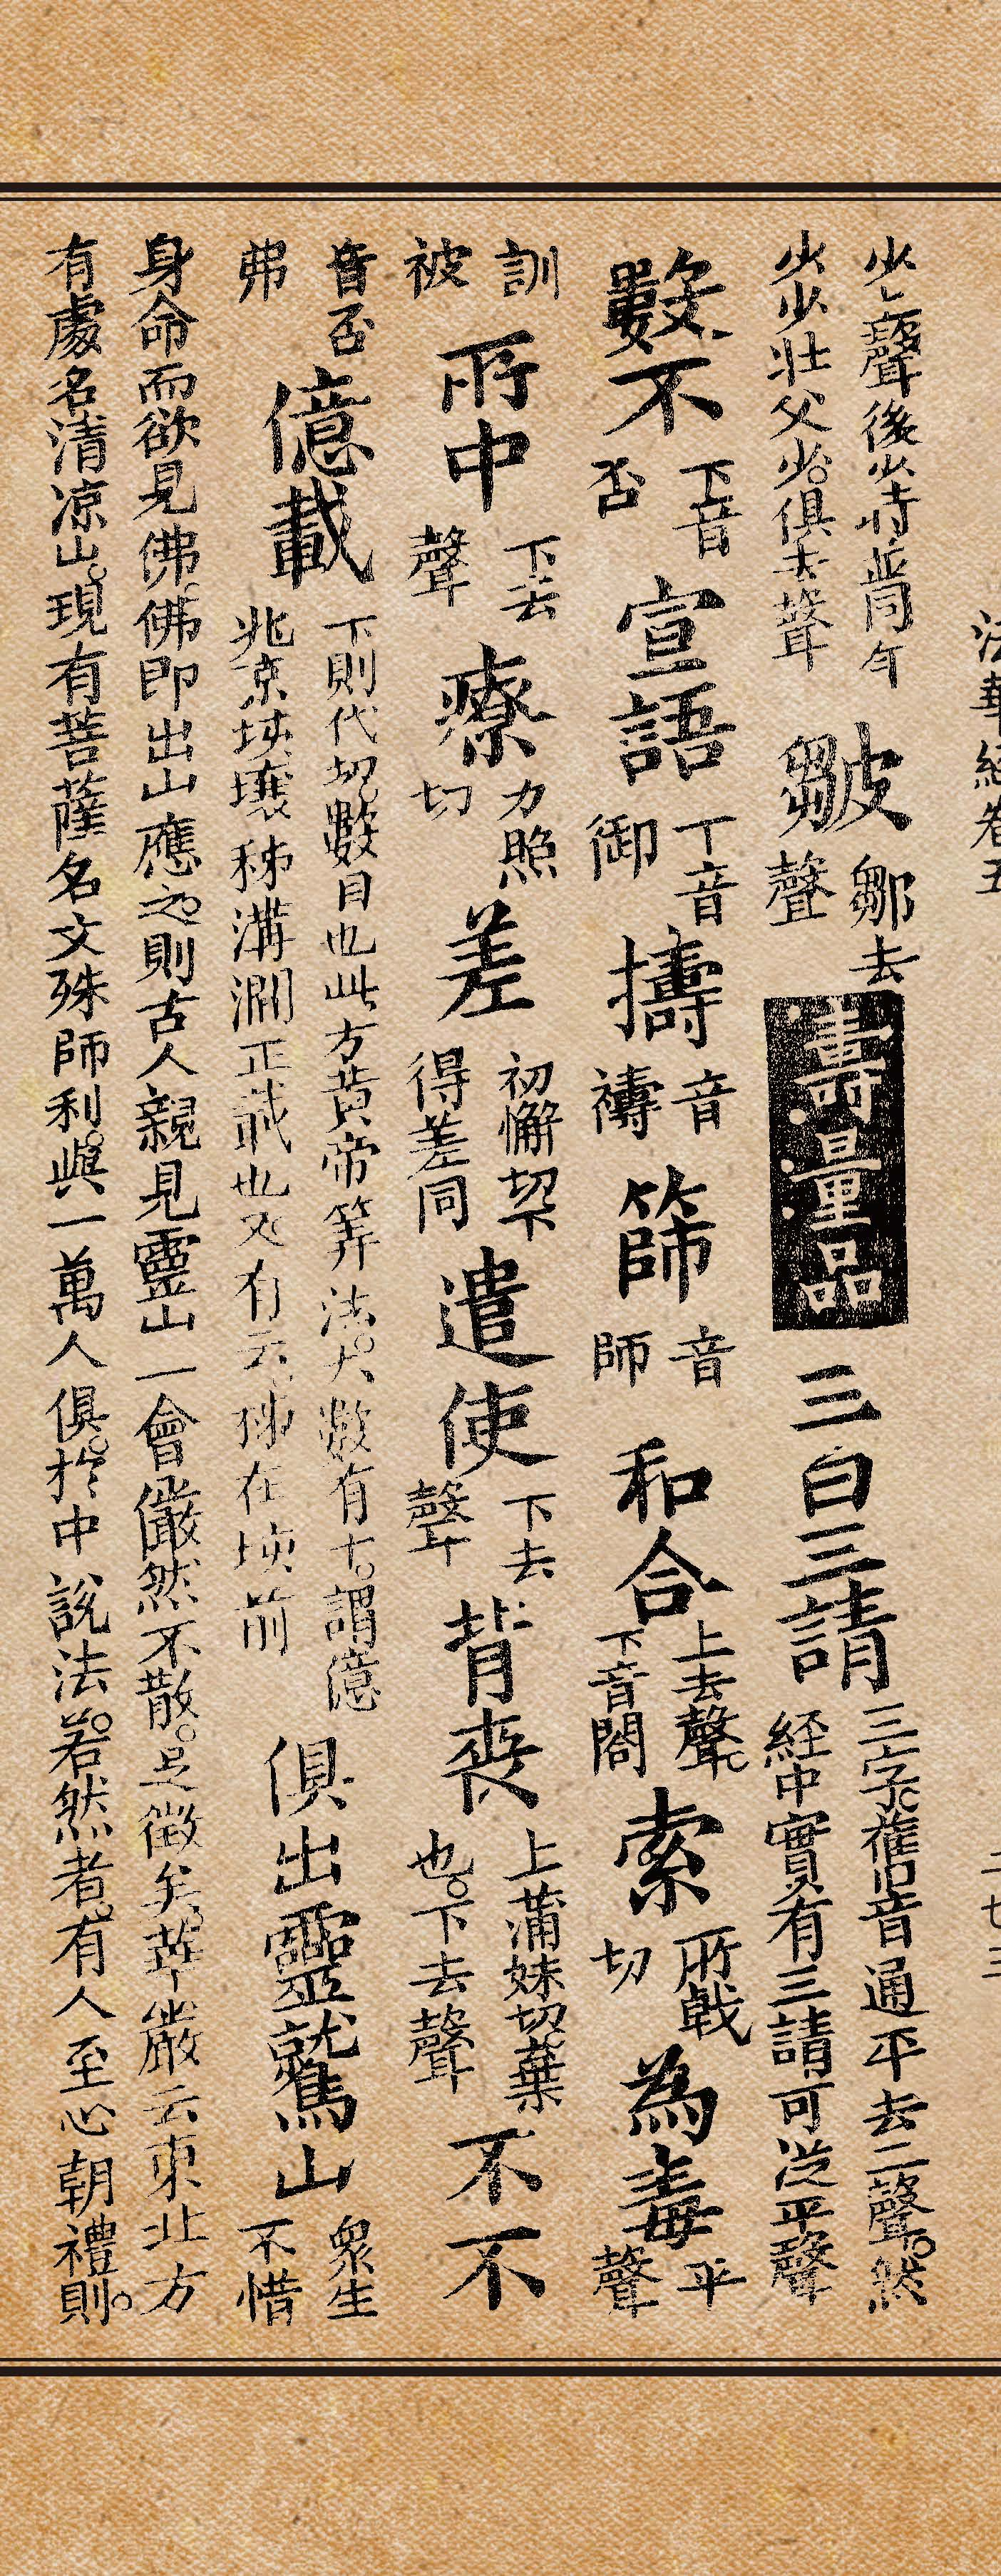 法華經卷五 二七三
少上聲後少時皆同年少少壯父少。俱去聲 皺 鄒去聲 壽量品 三白三請 三字舊音通平去二聲。然經中實有三請可從平聲
數不 下音否 宣語 下音御 擣 音禱 篩 音師 和合 上去聲。下音閤 索 所戟切 為毒 平聲
訓被 所中 下去聲 療 力照切 差 初懈切下得差同 遣使 下去聲 背喪 上蒲妹切。棄也。下去聲 不不
音否弗 億載 下則代切。數目也此方黃帝筭法。大數有十。謂億兆京垓壤秭溝澗正載也又有云。秭在垓前 俱出靈鷲山 眾生不惜
身命而欲見佛。佛即出山應之。則古人親見靈山一會儼然不散。足徵矣。華嚴云東北方
有處名清凉山。現有菩薩名文殊師利。與一萬人俱。於中說法。若然者。有人至心朝禮則。